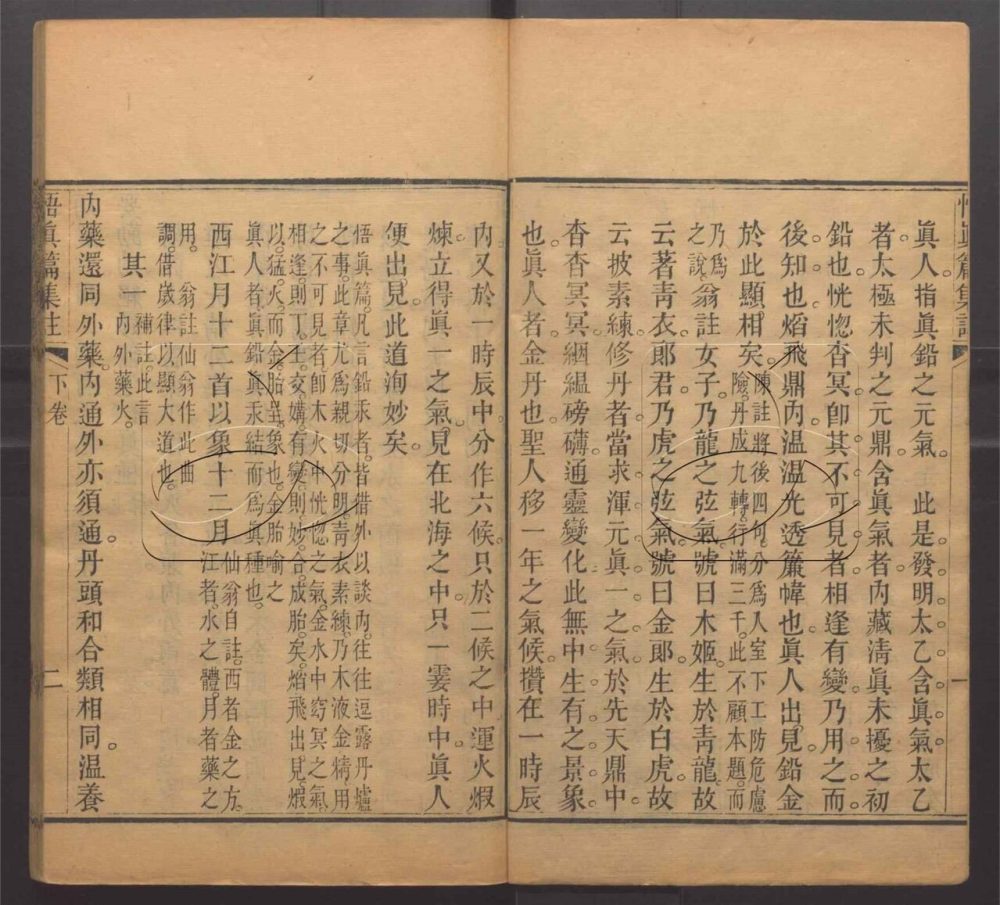 悟眞篇集註
眞人。指眞鉛之元氣。此是。發明太乙含眞氣。太乙
者。太極未判之元鼎。含眞氣者。內藏淸眞未擾之初
鉛也。恍惚杳冥。卽其不可見者。相逢有變。乃用之。而
後知也。熖飛鼎內。温温光透簾幃也。眞人出見。鉛金
於此顯相矣。陳註將後四句。分爲人室下工防危慮
險。丹成九轉。行滿三千。此不顧本題。而
乃爲
之說。翁註女子。乃龍之弦氣。號曰木姬。生於靑龍。故
云著靑衣。郞君。乃虎之弦氣。號曰金郞。生於白虎。故
云披素練。修丹者。當求渾元眞一之氣。於先天鼎中。
杳杳冥冥。絪縕磅礴。通靈變化。此無中生有之景象
也。眞人者。金丹也。聖人移一年之氣候。攢在一時辰
一
內。又於一時辰中。分作六候。只於二候之中。運火煆
煉。立得眞一之氣。見在北海之中。只一霎時中。眞人
便出。見。此道洵妙矣。
悟眞篇。凡言鉛汞者。皆借外以談內。往往逗露丹爐
之事。此章尤爲親切分明。靑衣素練。乃木液金精。用
之不可見者。卽木火中恍惚之氣。金水中窈冥之氣。
相逢。則丁壬交媾。有變則妙合。成胎矣。熖飛出見。煆
以猛火。而金胎呈象也。金胎喻之
眞人者。眞鉛眞汞結而爲眞種也。
西江月十二首以象十二月
仙翁自註。西者。金之方。
江者。水之體。月者。藥之
用。翁註仙翁作此曲
調。借歲律以顯大道也。
其一
補註。此言
內外藥火。
內藥還同外藥。內通外亦須通。丹頭和合類相同。温養
悟眞篇集註
下卷
二